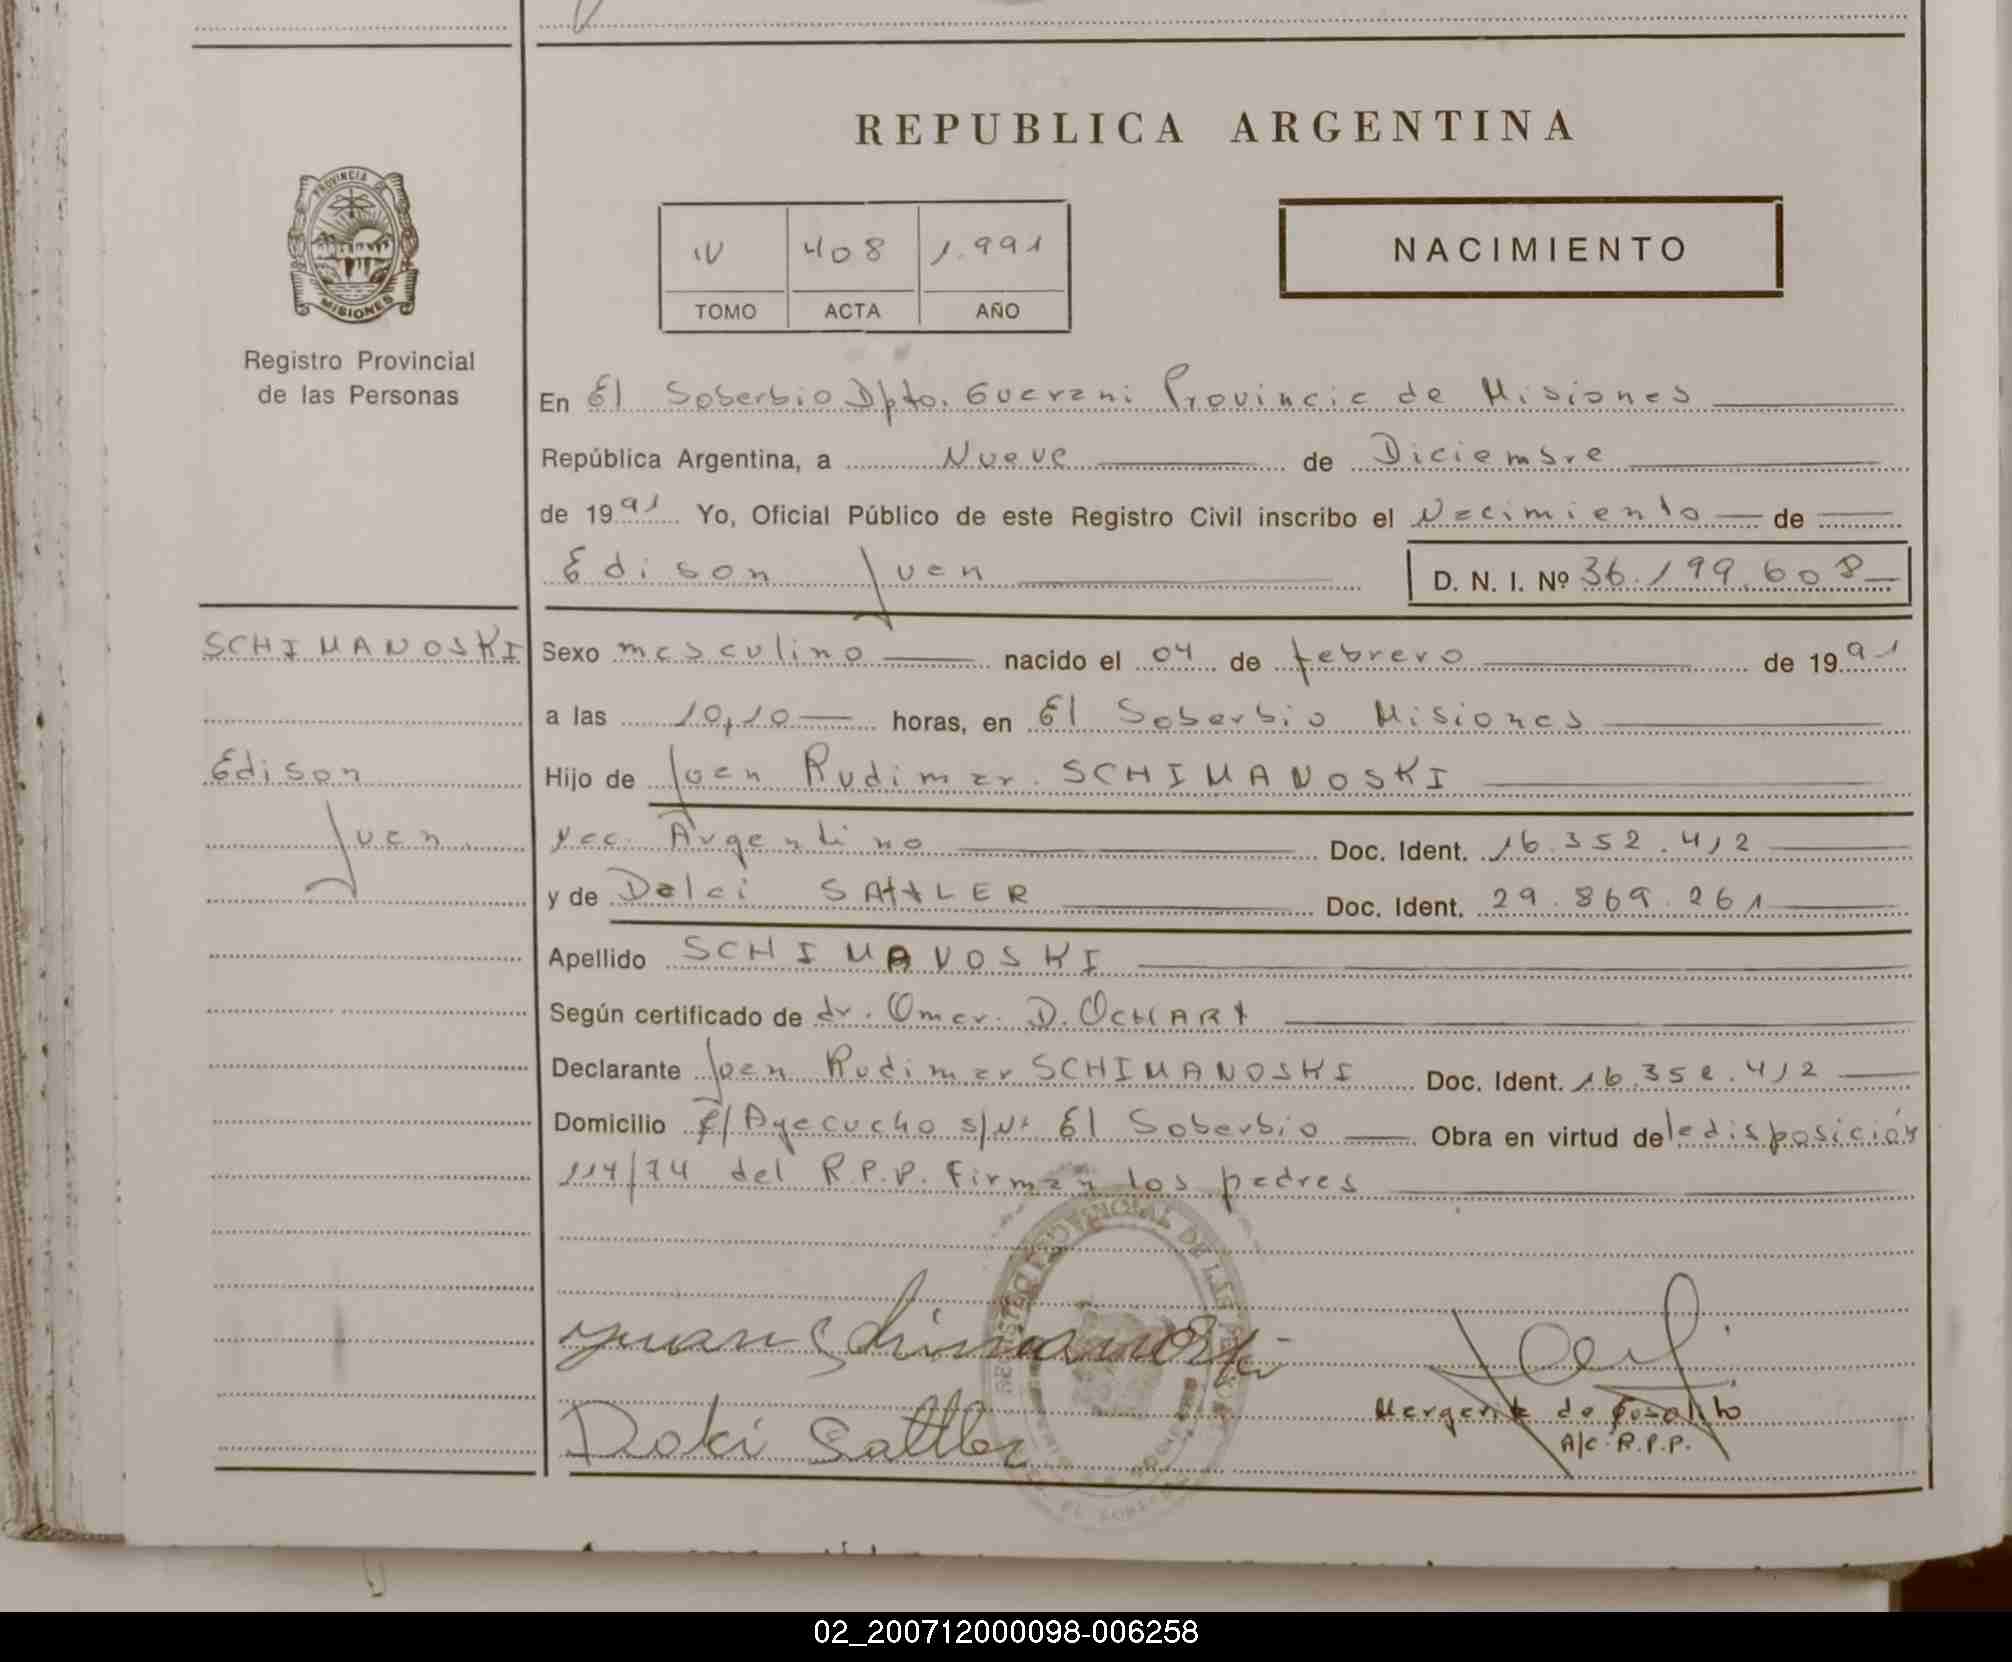 REPUBLICA ARGENTINA
PROVINCIA DE
MISIONES
Registro Provincial
de las Personas
IV 408 1.991
TOMO ACTA AÑO
NACIMIENTO
En El Soberbio Dpto. Guarani Provincia de Misiones
República Argentina, a Nueve de Diciembre
de 1991 Yo, Oficial Público de este Registro Civil inscribo el Nacimiento de
Edison Juan D. N. I. Nº 36.199.608
SCHIMANOSKI
Edison
Juan
Sexo masculino nacido el 04 de febrero de 1991
a las 10,10 horas, en El Soberbio Misiones
Hijo de Joan Rudimar SCHIMANOSKI
nac. Argentino Doc. Ident. 16.352.412
y de Dolci SATTLER Doc. Ident. 29.869.261
Apellido SCHIMANOSKI
Según certificado de dr. Omar D. OCHART
Declarante Joan Rudimar SCHIMANOSKI Doc. Ident. 16.352.412
Domicilio C/Ayacucho s/Nº El Soberbio Obra en virtud de la disposición
114/74 del R.P.P. Firman los padres
REGISTRO PROVINCIAL DE LAS PERSONAS
Juan Schimanoski
Dolci Sattler
Margarita de
A/C. R.P.P.
02_200712000098-006258